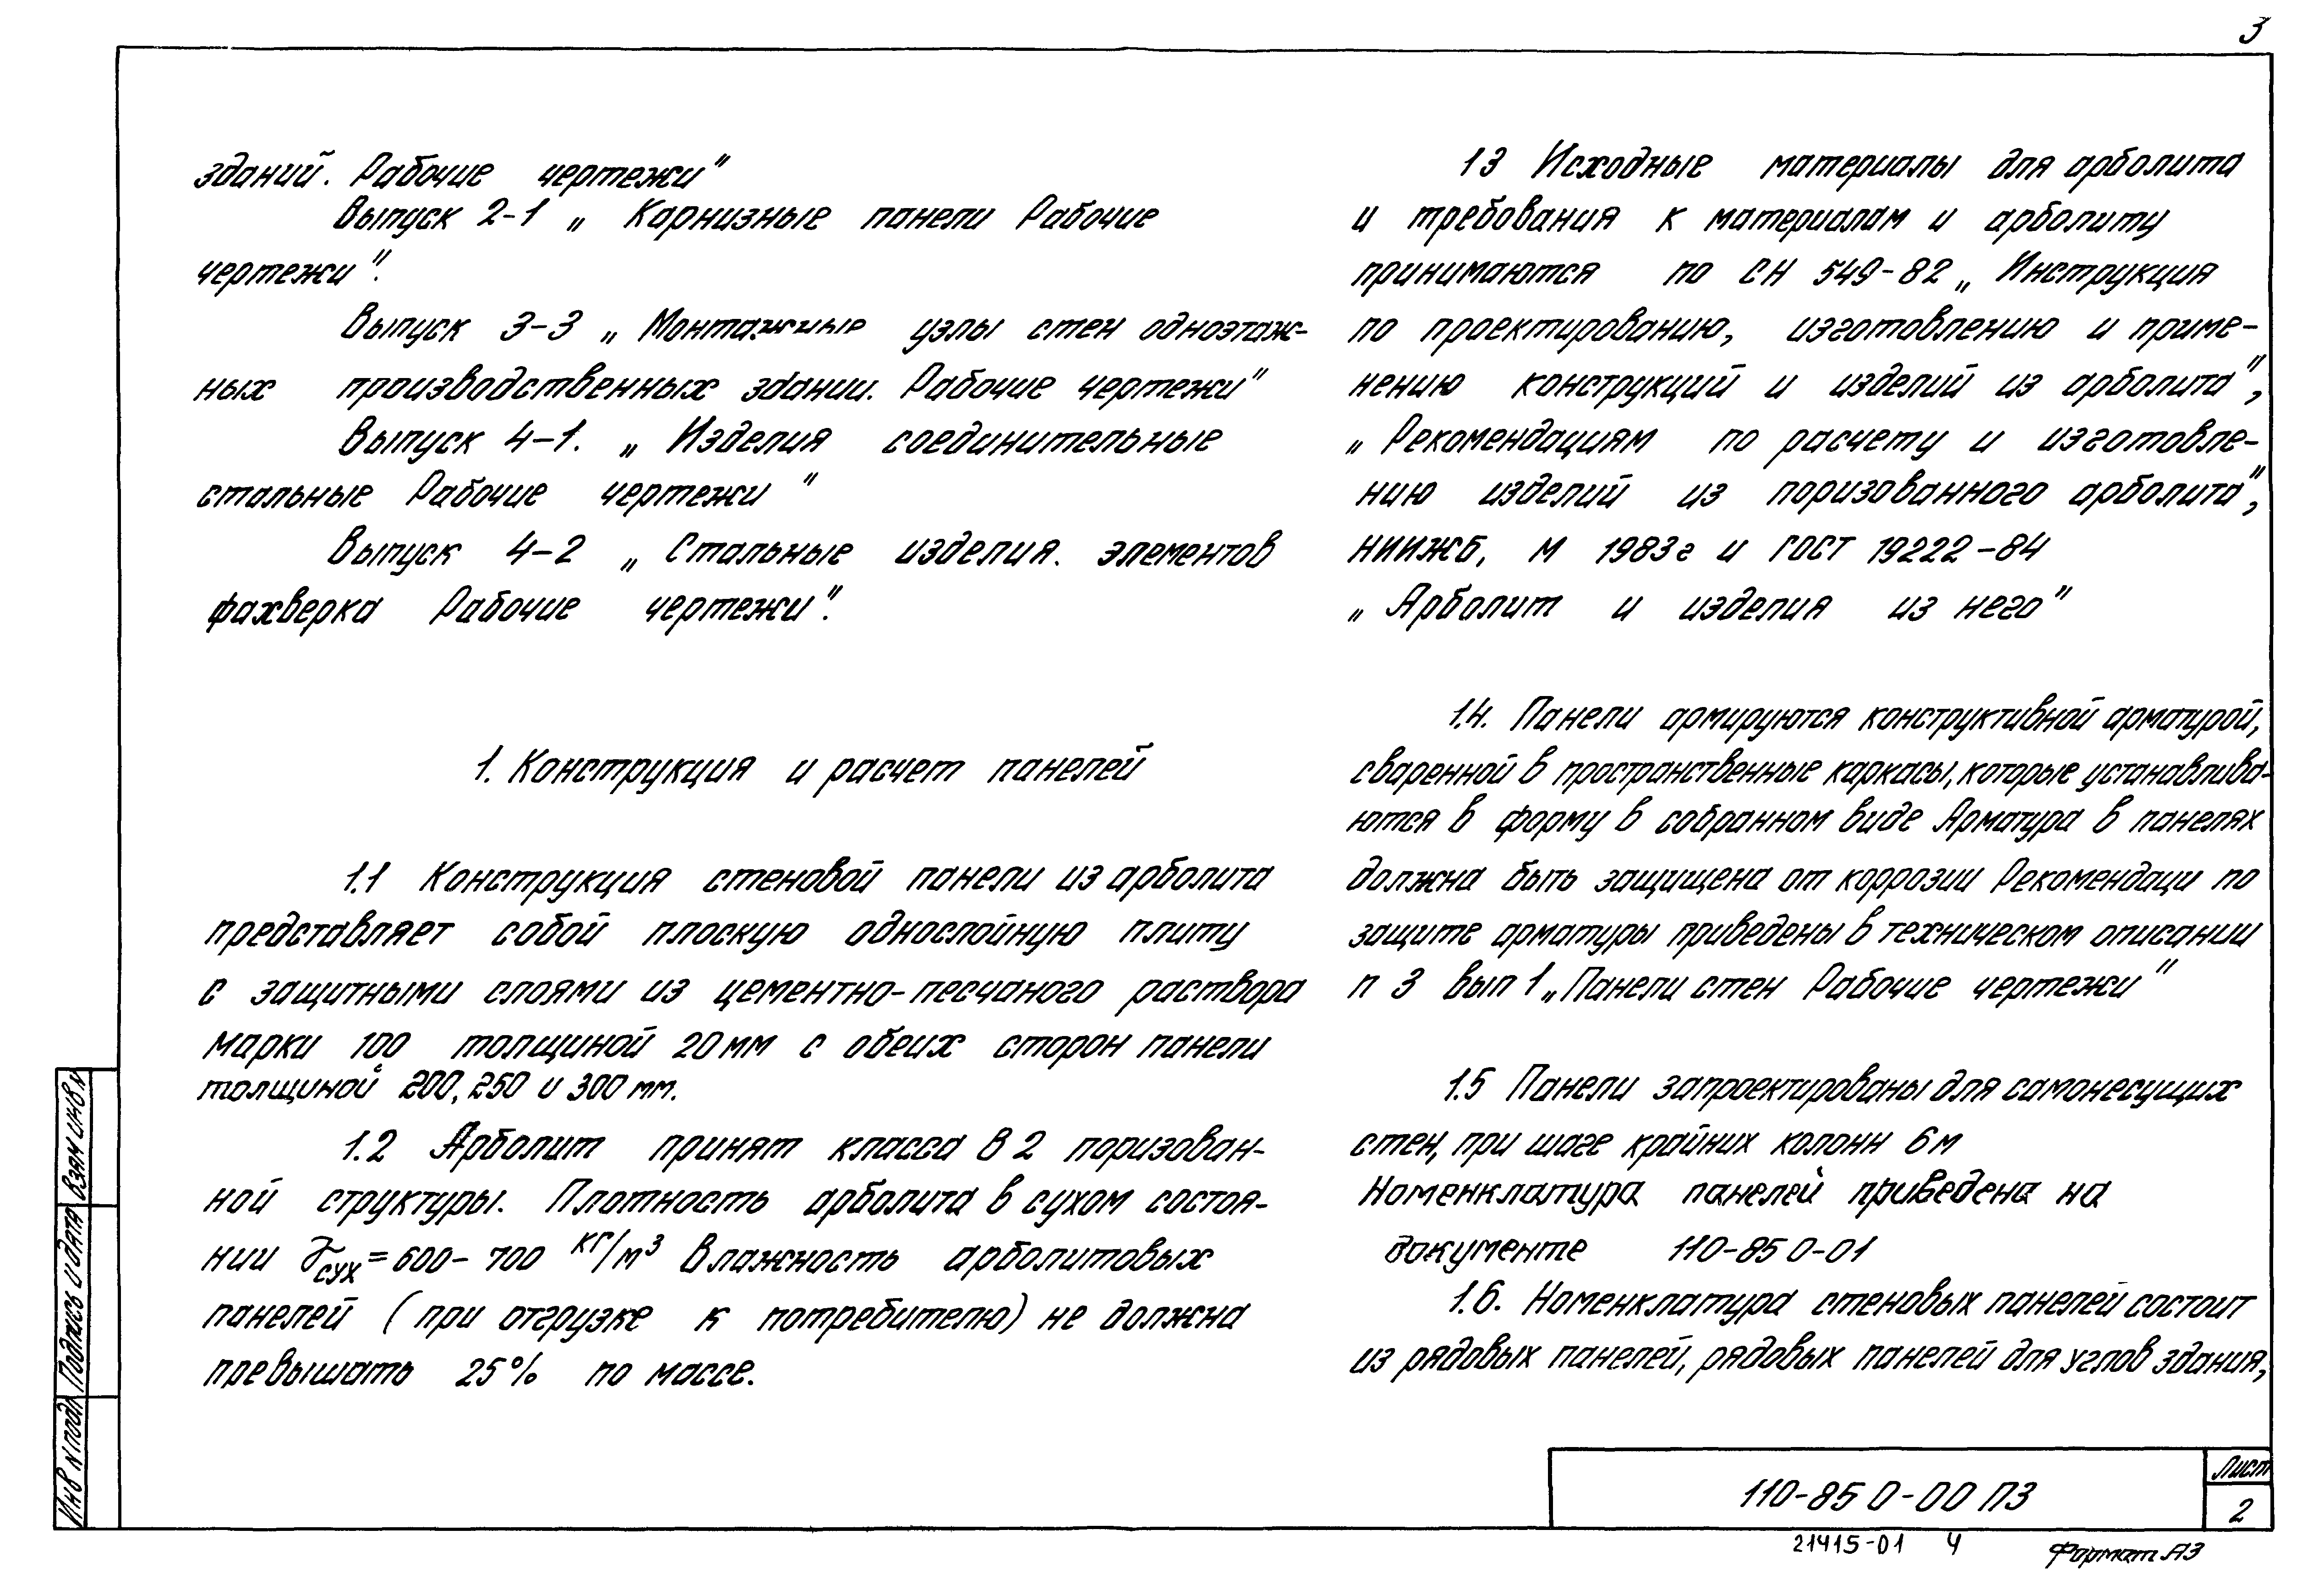 3
зданий. Рабочие чертежи"
Выпуск 2-1 „ Карнизные панели Рабочие
чертежи".
Выпуск 3-3 „ Монтажные узлы стен одноэтаж-
ных производственных здании. Рабочие чертежи"
Выпуск 4-1. „ Изделия соединительные
стальные Рабочие чертежи "
Выпуск 4-2 „ Стальные изделия. элементов
фахверка Рабочие чертежи".
1. Конструкция и расчет панелей
1.1 Конструкция стеновой панели из арболита
представляет собой плоскую однослойную плиту
с защитными слоями из цементно-песчаного раствора
марки 100 толщиной 20 мм с обеих сторон панели
толщиной 200, 250 и 300 мм.
1.2 Арболит принят класса В 2 поризован-
ной структуры. Плотность арболита в сухом состоя-
нии γсух = 600 - 700 кг/м³ Влажность арболитовых
панелей ( при отгрузке к потребителю) не должна
превышать 25% по массе.
13 Исходные материалы для арболита
и требования к материалам и арболиту
принимаются по СН 549-82 „ Инструкция
по проектированию, изготовлению и приме-
нению конструкций и изделий из арболита",
„ Рекомендациям по расчету и изготовле-
нию изделий из поризованного арболита",
НИИЖБ, М 1983г и ГОСТ 19222-84
„ Арболит и изделия из него"
1.4. Панели армируются конструктивной арматурой,
сваренной в пространственные каркасы, которые устанавлива-
ются в форму в собранном виде Арматура в панелях
должна быть защищена от коррозии Рекомендаци по
защите арматуры приведены в техническом описании
п 3 вып 1 „Панели стен Рабочие чертежи"
1.5 Панели запроектированы для самонесущих
стен, при шаге крайних колонн 6 м
Номенклатура панелей приведена на
документе 110-85 0-01
1.6. Номенклатура стеновых панелей состоит
из рядовых панелей, рядовых панелей для углов здания,
Взам инв N
Подпись и дата
Инв N подл
110-85 0-00 ПЗ
Лист
2
21415-01 4
Формат А3